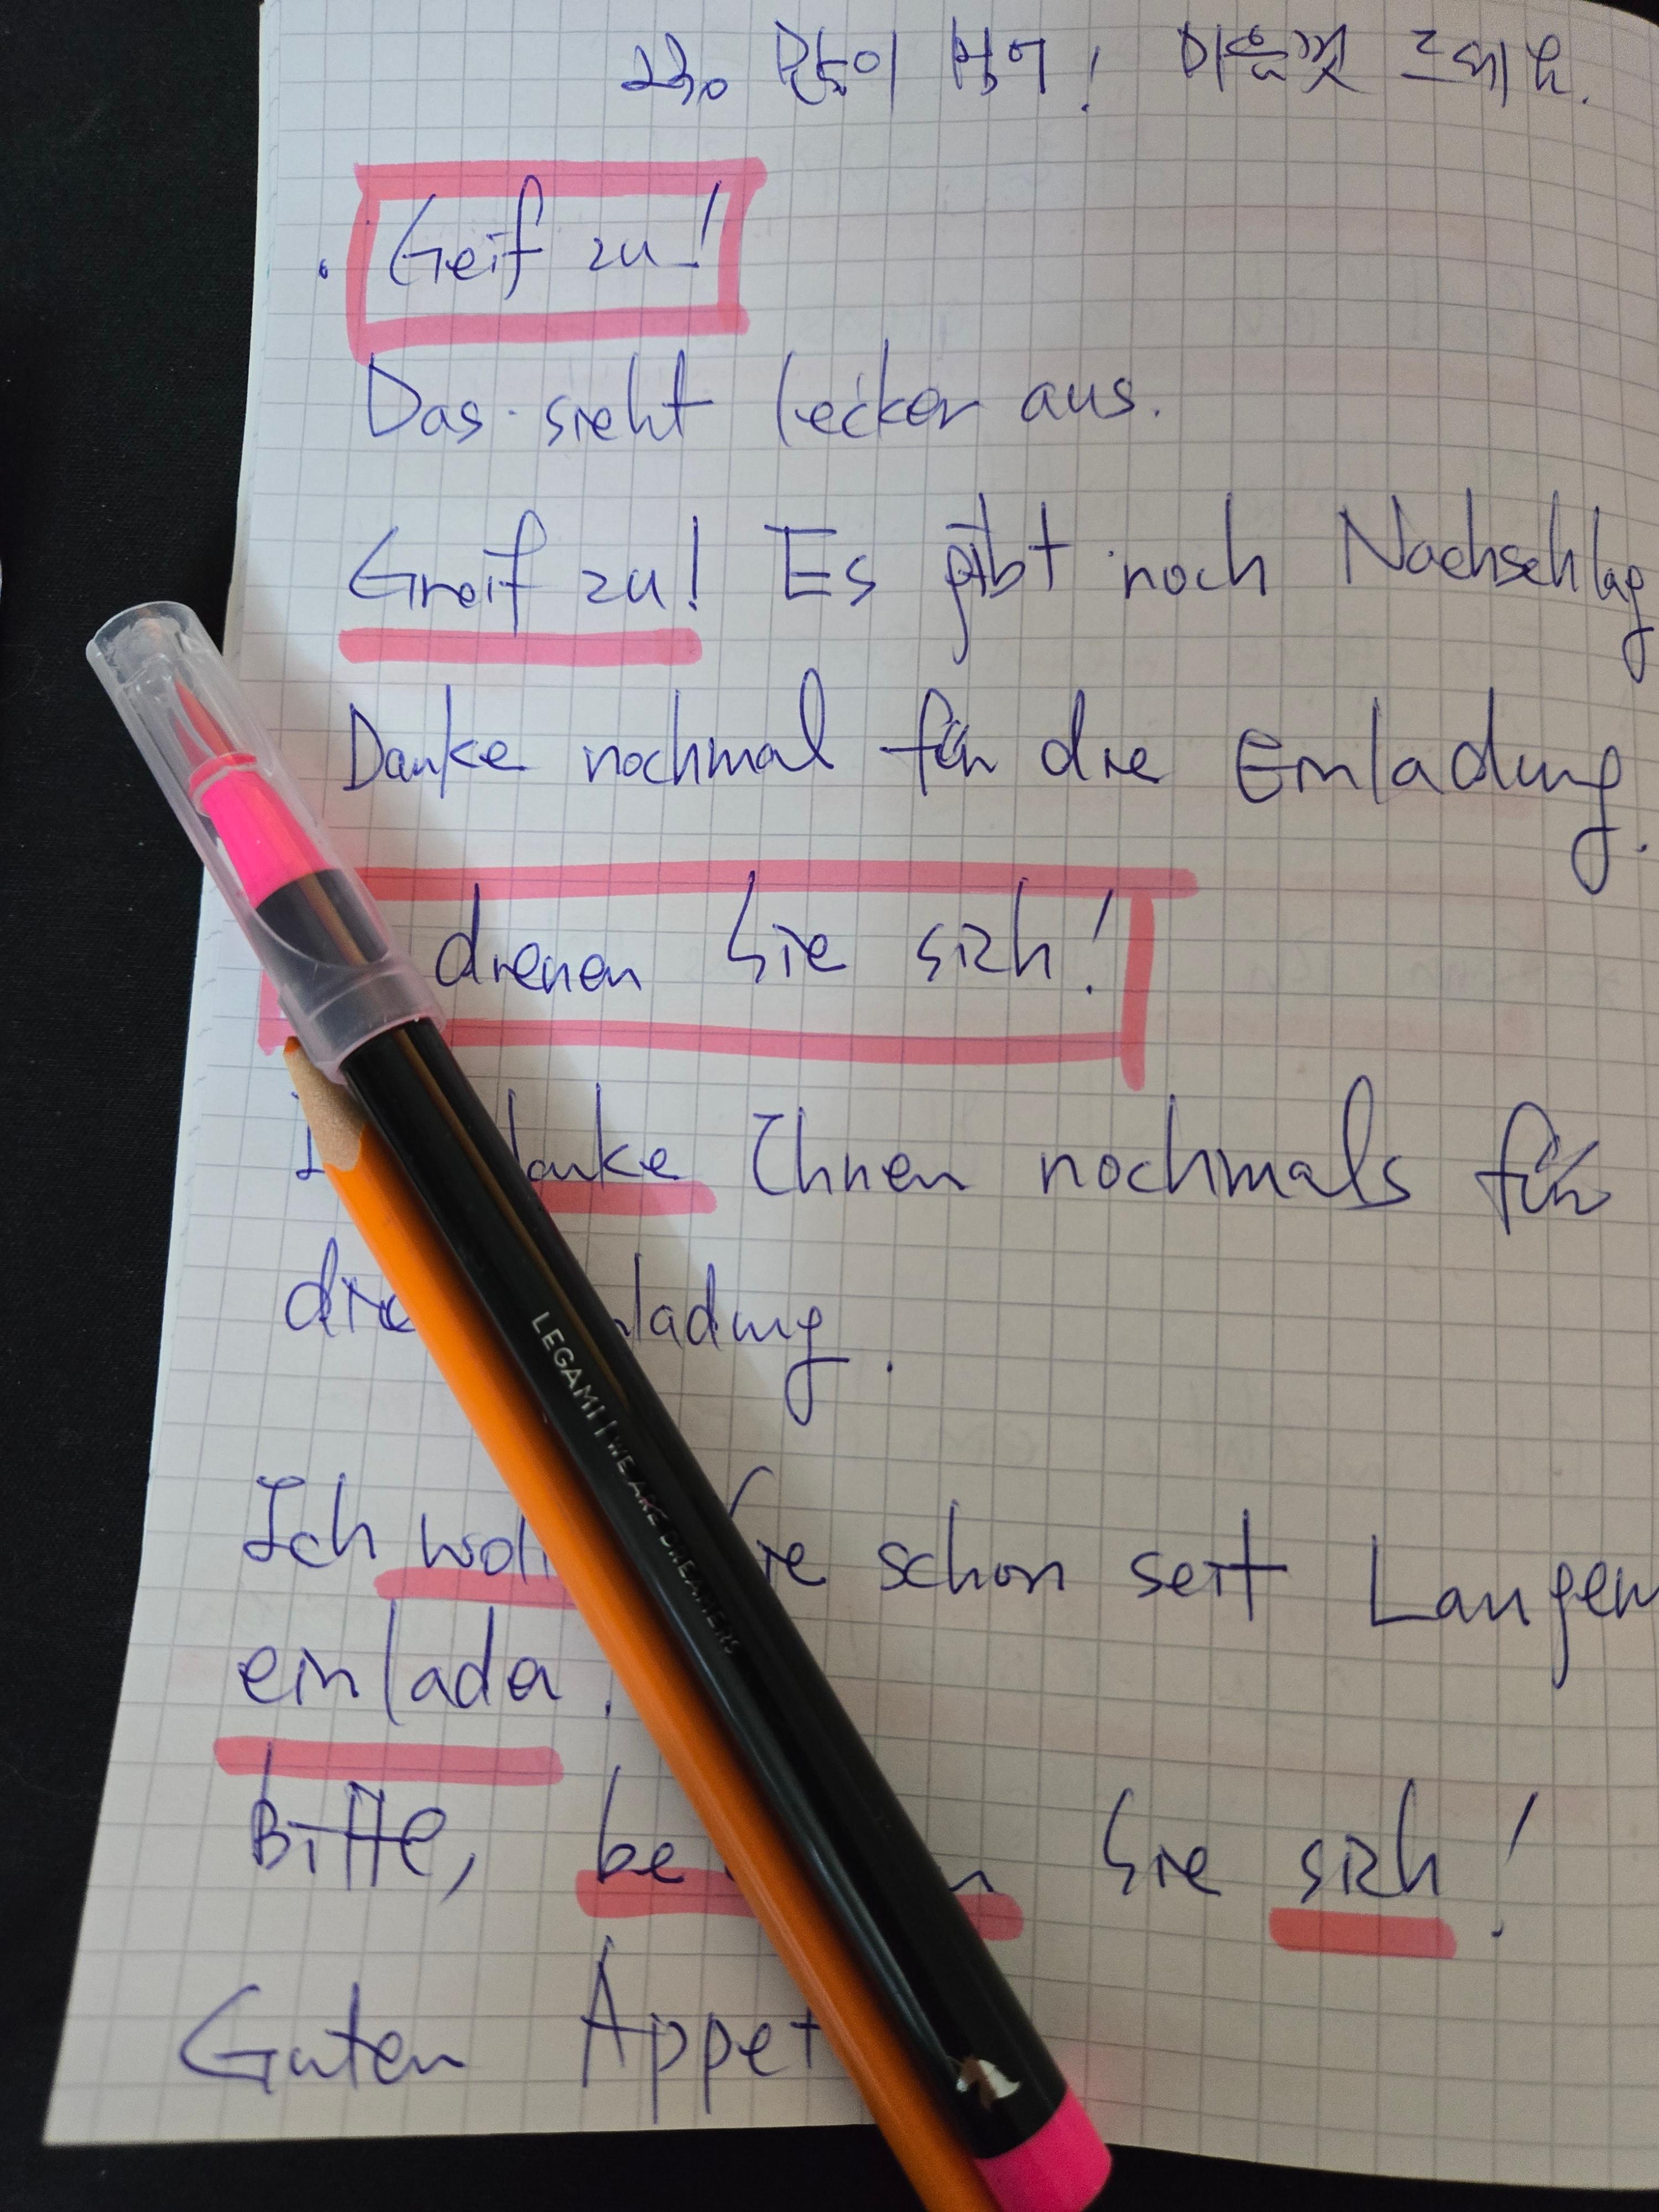 많이 먹어! 마음껏 드세요.
. Geif zu!
Das sieht lecker aus.
Greif zu! Es gibt noch Nachschlag
Danke nochmal für die Einladung.
dienen Sie sich!
danke Ihnen nochmals für
die ladung.
Ich woll Sie schon seit Langem
einladen.
Bitte, be n Sie sich!
Guten Appet
LEGAMI | WE ARE DREAMERS